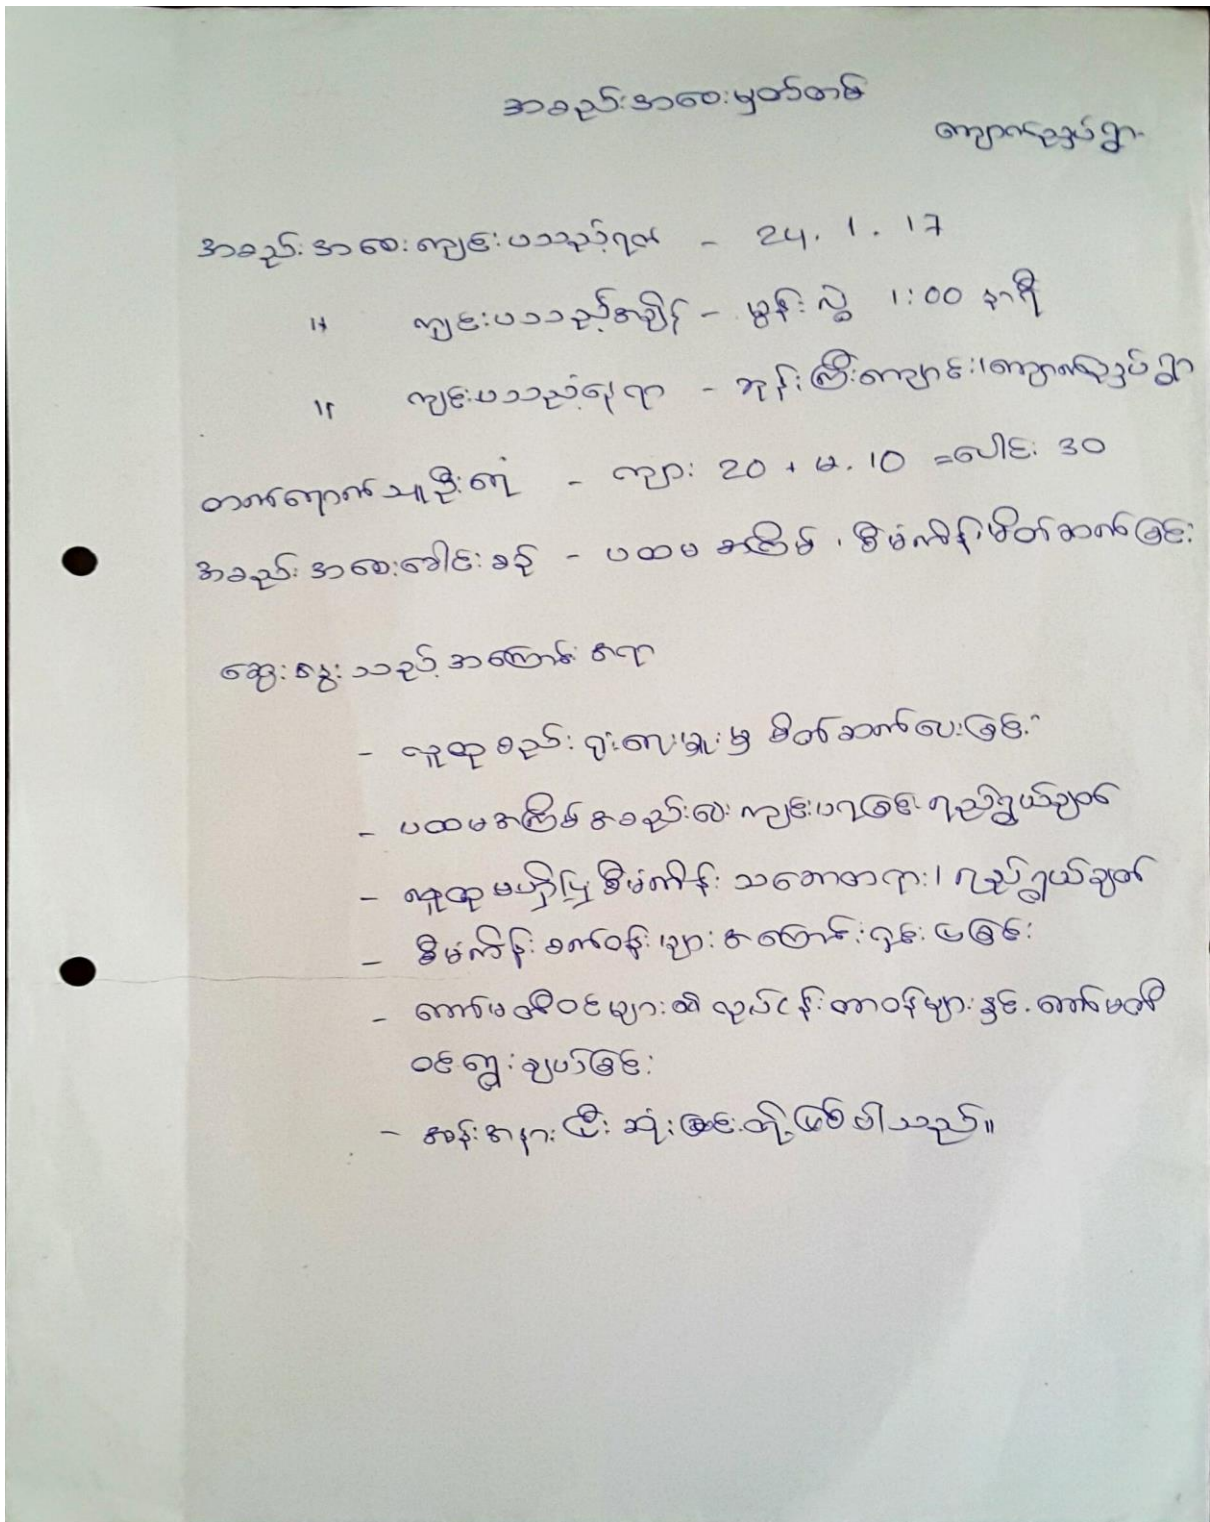 အစည်းအဝေးမှတ်တမ်း
ကျောက်ညှပ်ရွာ
အစည်းအဝေးကျင်းပသည့်ရက် - 24. 1. 17
" ကျင်းပသည့်အချိန် - မွန်းလွဲ 1:00 နာရီ
" ကျင်းပသည့်နေရာ - ဘုန်းကြီးကျောင်း၊ ကျောက်ညှပ်ရွာ
တက်ရောက်သူဦးရေ - ကျား 20 + မ. 10 = ပေါင်း 30
အစည်းအဝေးခေါင်းစဉ် - ပထမအကြိမ်၊ စီမံကိန်းမိတ်ဆက်ခြင်း
ဆွေးနွေးသည့်အကြောင်းအရာ
- လူထုစည်းရုံးရေးမှူးမှ မိတ်ဆက်ပေးခြင်း
- ပထမအကြိမ်အစည်းဝေး ကျင်းပရခြင်းရည်ရွယ်ချက်
- လူထုမဟာပြုစီမံကိန်း သဘောတရား၊ ရည်ရွယ်ချက်
- စီမံကိန်းစက်ဝန်းများအကြောင်းရှင်းပြခြင်း
- ကော်မတီဝင်များ၏လုပ်ငန်းတာဝန်များနှင့် ကော်မတီ
ဝင်ရွေးချယ်ခြင်း
- အခန်းအနားပြီးဆုံးခြင်းတို့ဖြစ်ပါသည်။